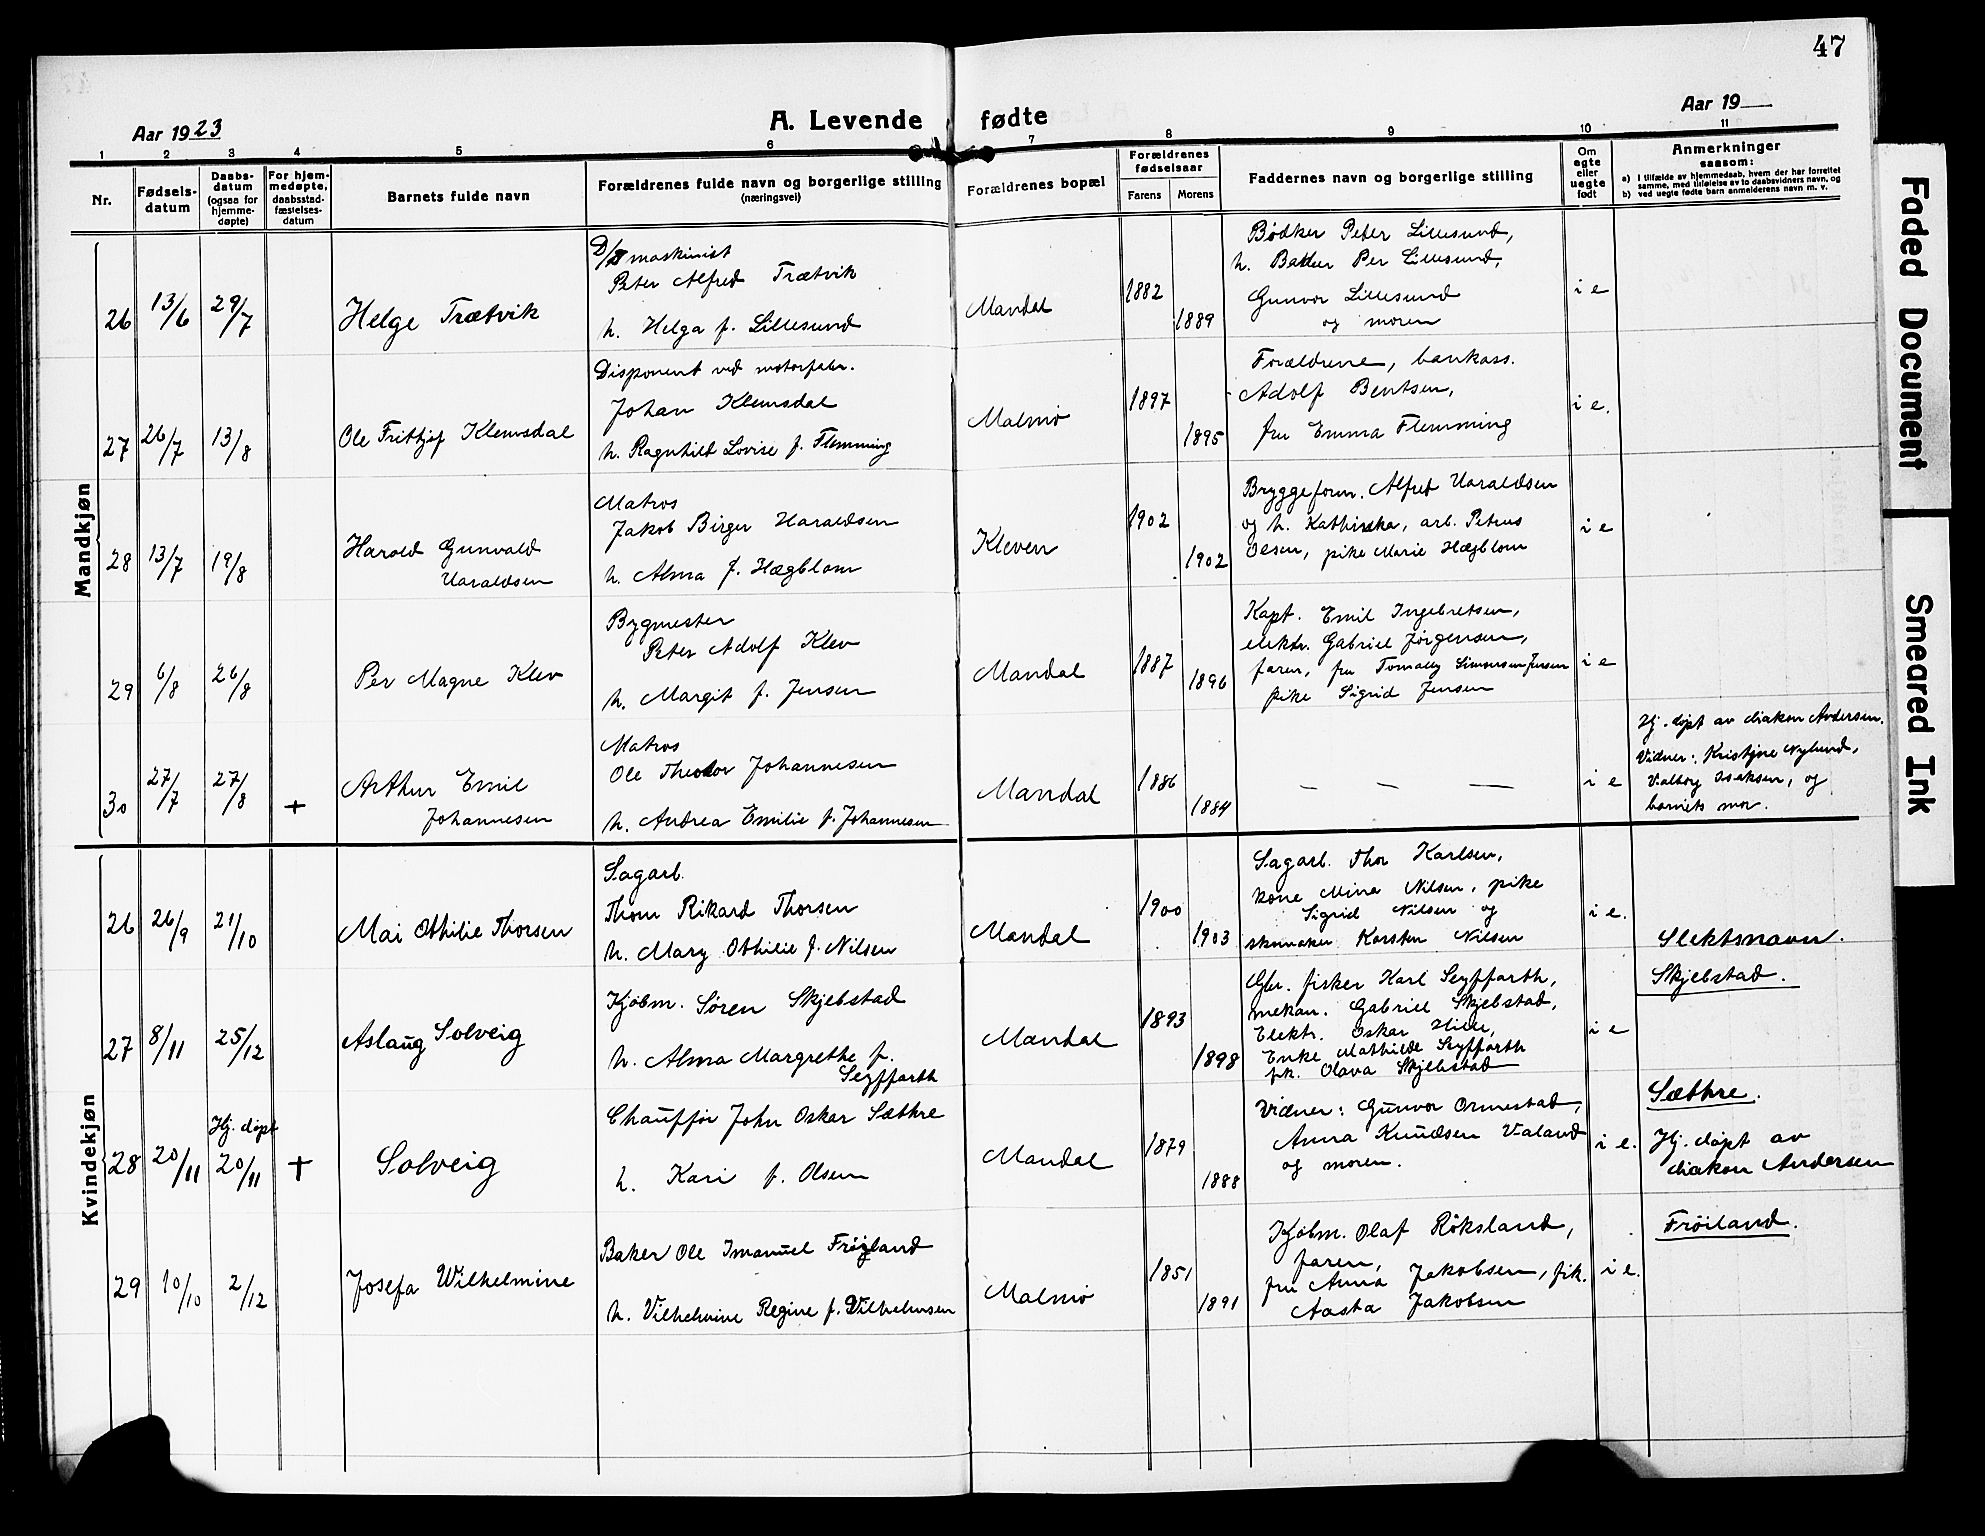 47
Aar 1923
A. Levende fødte
Aar 19
1 2 3 4 5 6 7 8 9 10 11
Nr.
Fødsels-
datum
Daabs-
datum
(ogsaa for
hjemme-
døpte)
For hjem-
medøpte,
daabsstad-
fæstelses-
datum
Barnets fulde navn
Forældrenes fulde navn og borgerlige stilling
(næringsvei)
Forældrenes bopæl
Forældrenes
fødselsaar
Farens Morens
Faddernes navn og borgerlige stilling
Om
egte
eller
uegte
født
Anmerkninger
saasom:
a) I tilfælde av hjemmedaab, hvem der har forrettet
samme, med tilføielse av to daabsvidners navn, og
b) ved uegte fødte barn anmelderens navn m. v.
Mandkjøn
26 13/6 29/7
Helge Trætvik
D/S maskinist
Peter Alfred Trætvik
h. Helga f. Lillesund
Mandal
1882
1889
Bødker Peter Lillesund,
h. Baker Per Lillesund,
Gunvor Lillesund
og moren
i e
27 26/7 13/8
Ole Frithjof Klemsdal
Disponent ved motorfabr.
Johan Klemsdal
h. Ragnhild Lovise f. Flemming
Malmø
1897
1895
Forældrene, bankass.
Adolf Bentsen,
fru Emma Flemming
i e.
28 13/7 19/8
Harald Gunvald
Haraldsen
Matros
Jakob Birger Haraldsen
h. Alma f. Hægblom
Kleven
1902
1902
Bryggeform. Alfred Haraldsen
og h. Kathinka, arb. Petrus
Olsen, pike Marie Hægblom
i e
29 6/8 26/8
Per Magne Klev
Bygmester
Peter Adolf Klev
h. Margit f. Jensen
Mandal
1887
1896
Kapt. Emil Ingebretsen,
elektr. Gabriel Jørgensen,
faren, fru Tomally Simonsen Jensen
pike Sigrid Jensen
i e
30 27/7 27/8 +
Arthur Emil
Johannesen
Matros
Ole Theodor Johannesen
h. Andrea Emilie f. Johannesen
Mandal
1886
1884
— — —
i e
Hj. døpt av diakon Andersen.
Vidner: Kristine Nylund,
Valborg Isaksen, og
barnets mor.
Kvindekjøn
26 26/9 21/10
Mai Othilie Thorsen
Sagarb.
Thom Rikard Thorsen
h. Mary Othilie f. Nilsen
Mandal
1900
1903
Sagarb. Thor Karlsen,
kone Mina Nilsen, pike
Sigrid Nilsen og
skomaker Karsten Nilsen
i e.
Slektsnavn.
27 8/11 25/12
Aslaug Solveig
Kjøbm. Søren Skjebstad
h. Alma Margrethe f.
Seyffarth
Mandal
1893
1898
Gbr. fisker Karl Seyffarth,
mekan. Gabriel Skjebstad,
Elektr. Oskar Hille,
Enke Mathilde Seyffarth
pk. Olava Skjebstad
i e
Skjebstad.
28 20/11 Hj. døpt
20/11 +
Solveig
Chauffør John Oskar Sæthre
h. Kari f. Olsen
Mandal
1879
1888
Vidner: Gunvor Ormestad,
Anna Knudsen Valand
og moren.
i e.
Sæthre.
Hj. døpt av
diakon Andersen
29 10/10 2/12
Josefa Wilhelmine
Baker Ole Imanuel Frøiland
h. Vilhelmine Regine f. Vilhelmsen
Malmø
1851
1891
Kjøbm. Olaf Røksland,
faren,
fru Anna Jakobsen, pik.
Aasta Jakobsen
i e.
Frøiland.
Faded Document
Smeared Ink